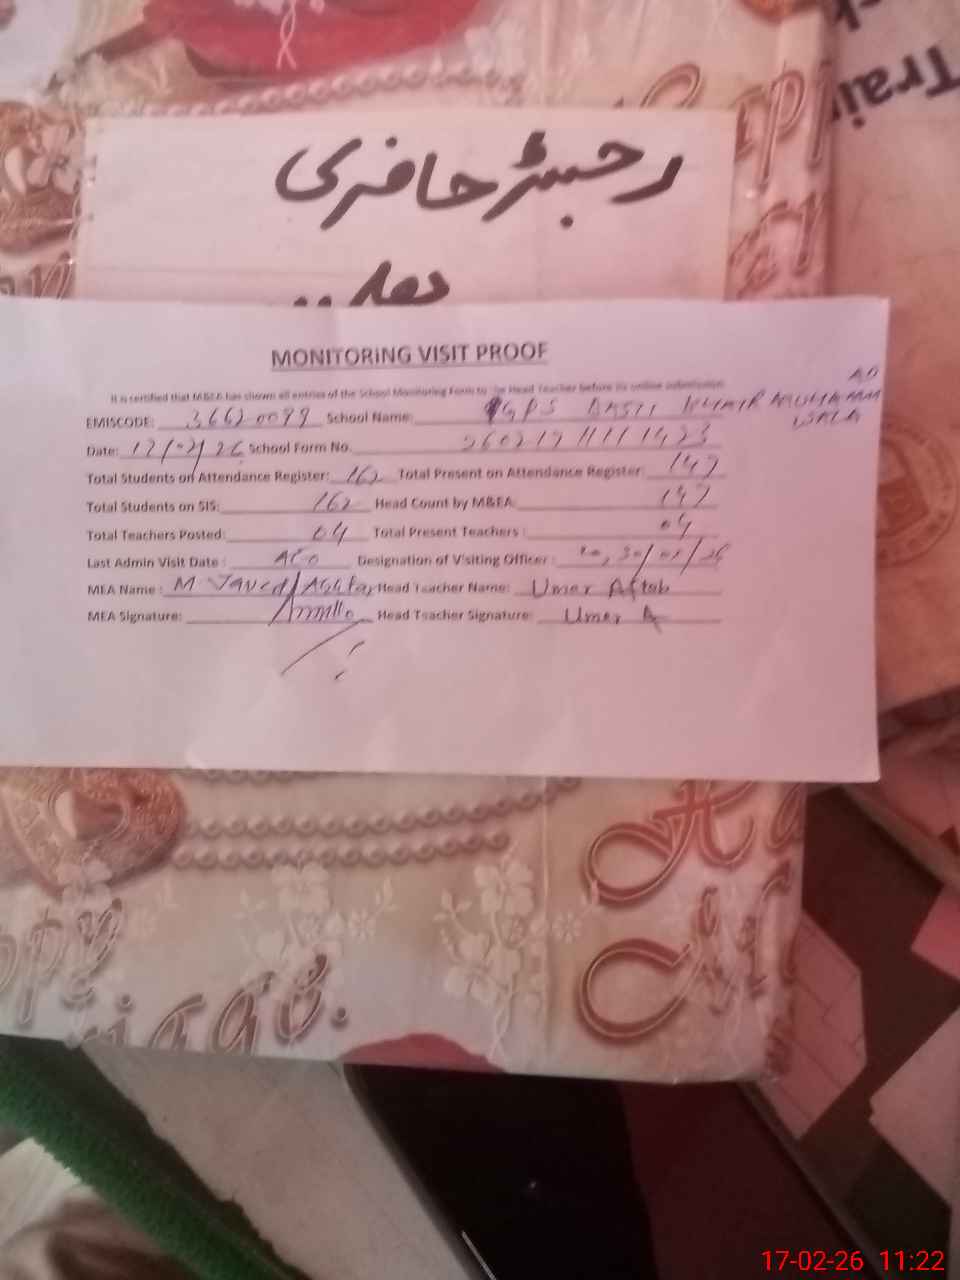 Trai
رجسٹر حاضری
MONITORING VISIT PROOF
It is certified that M&EA has shown all entries of the School Monitoring Form to the Head Teacher before its online submission
EMISCODE: School Name: GPS BASTI KHAIR MUHAMMAD WALA
Date: 17/02/26 School Form No.
Total Students on Attendance Register: 162 Total Present on Attendance Register: 147
Total Students on SIS: 162 Head Count by M&EA: 147
Total Teachers Posted: 04 Total Present Teachers : 04
Last Admin Visit Date : AEO Designation of Visiting Officer :
MEA Name : M Javed Akhtar Head Teacher Name: Umer Aftab
MEA Signature: Head Teacher Signature: Umer A
17-02-26 11:22